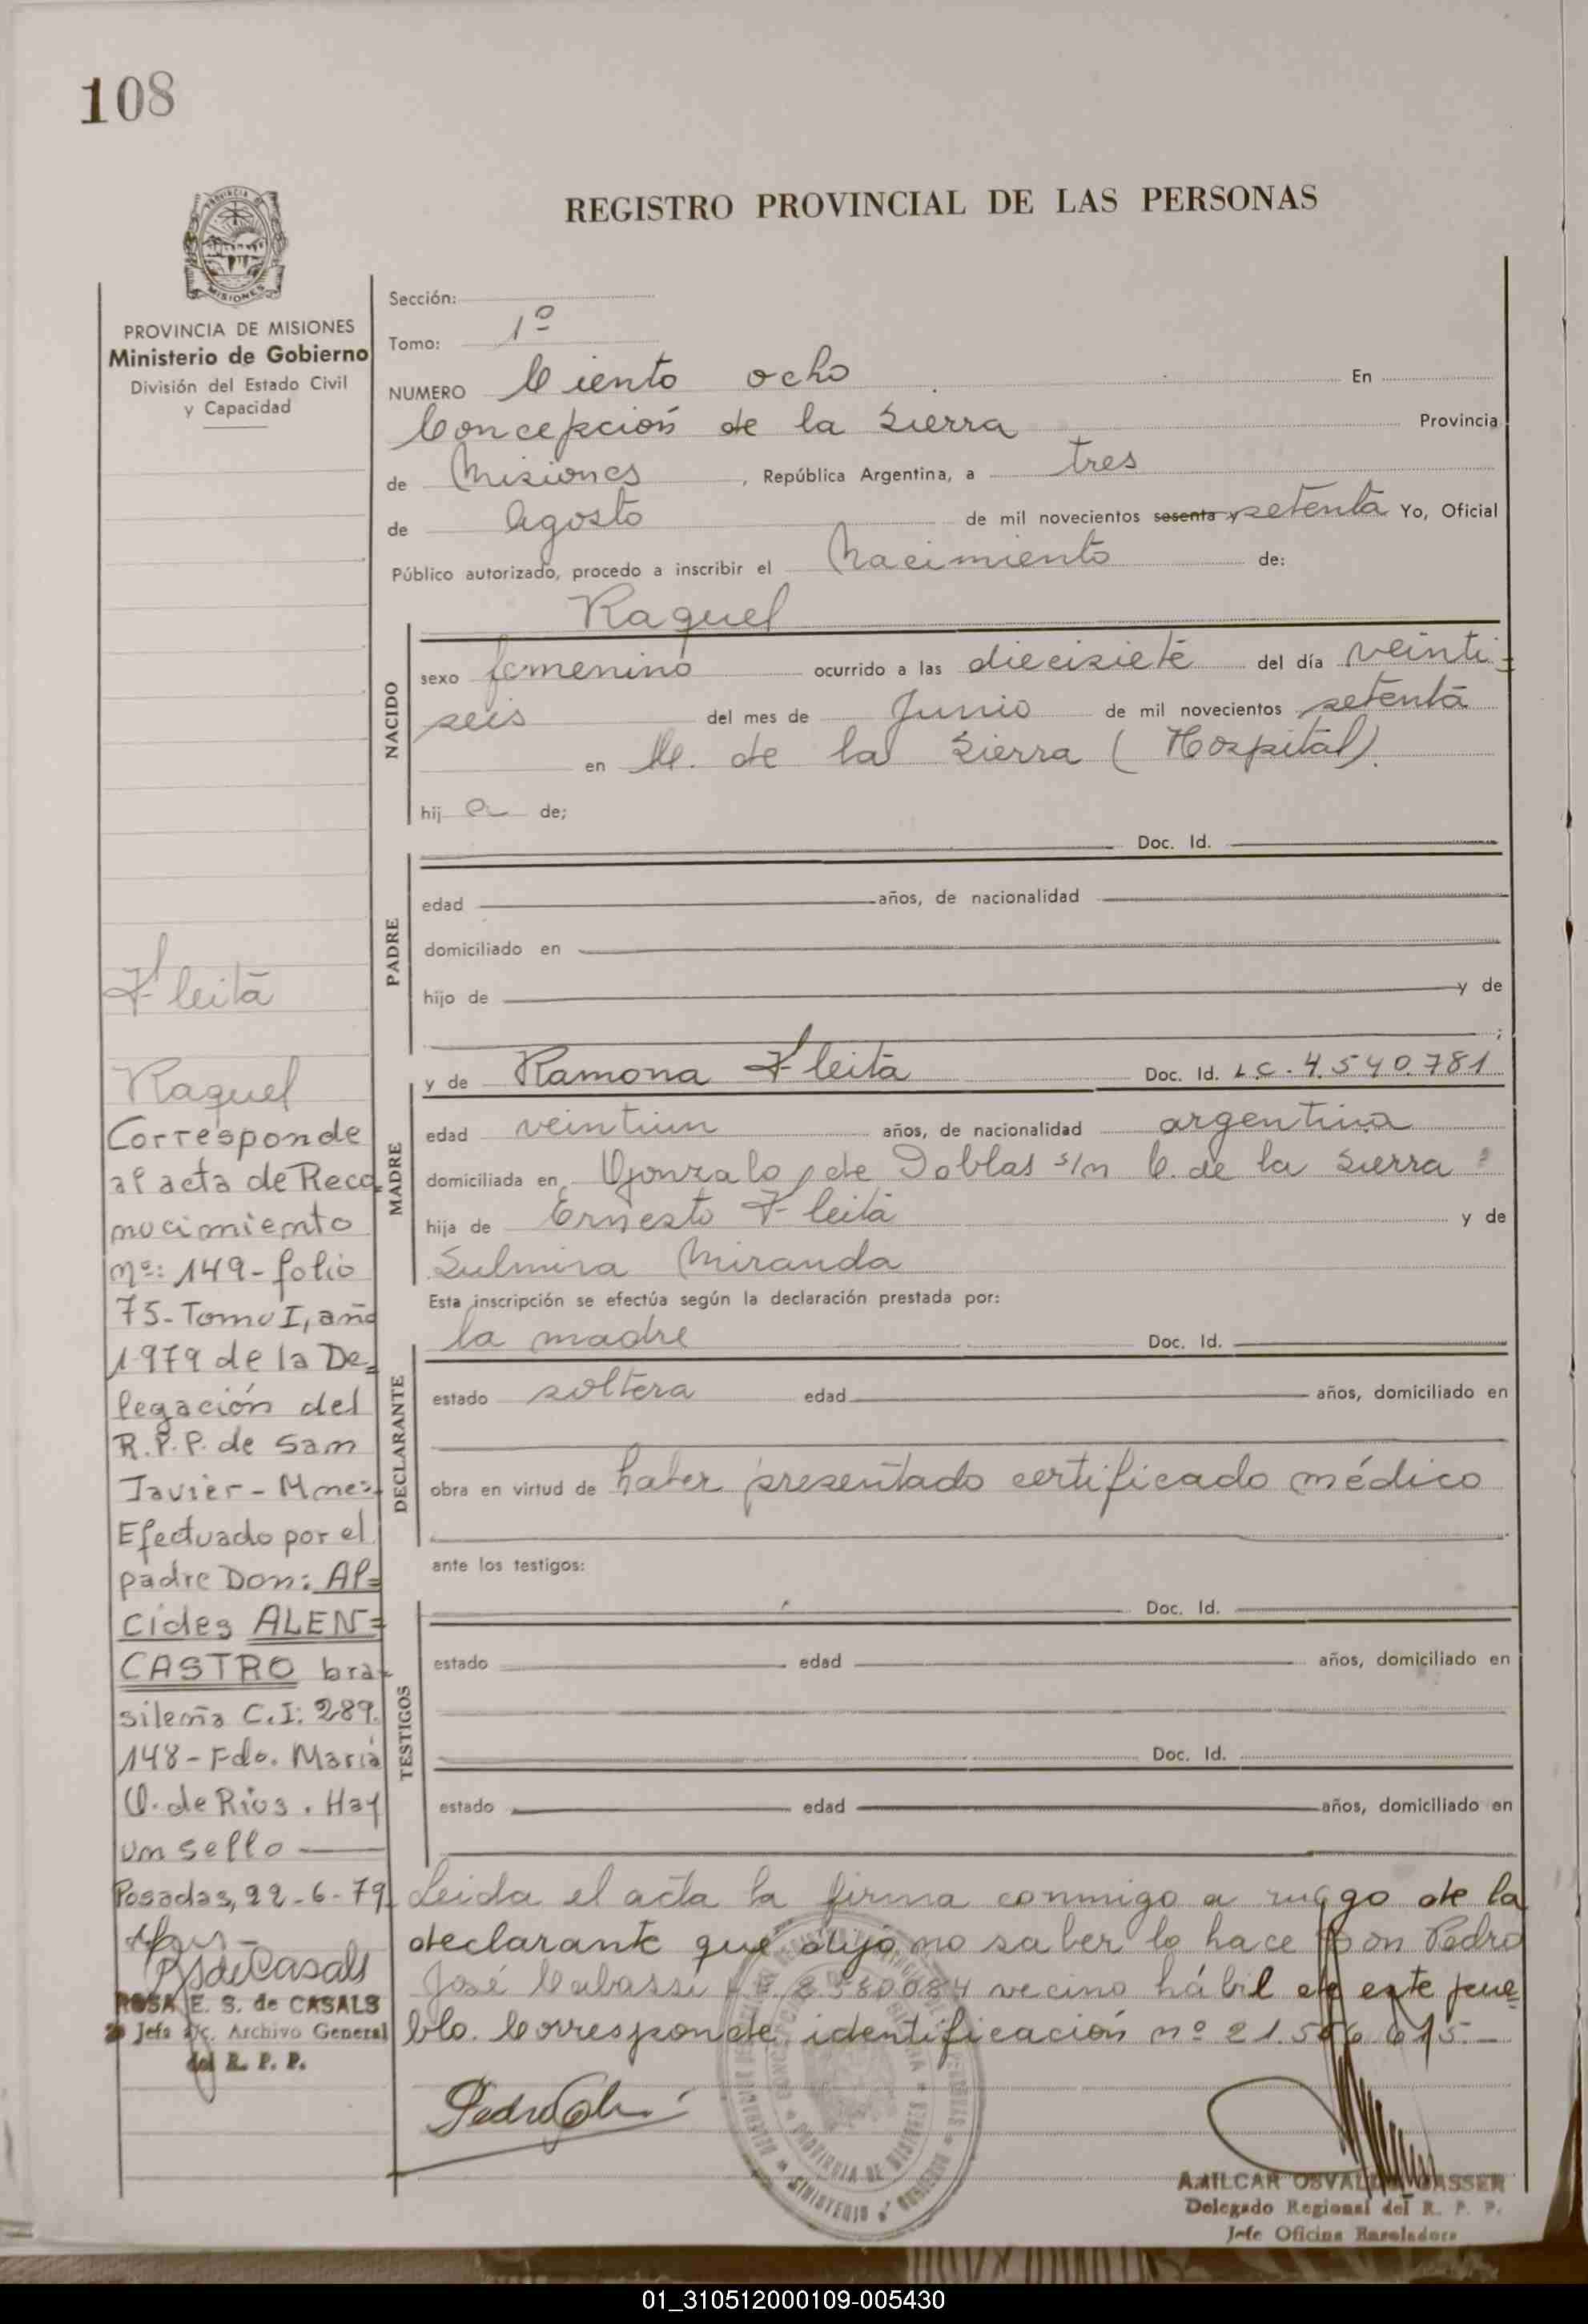 108
REGISTRO PROVINCIAL DE LAS PERSONAS
PROVINCIA
MISIONES
PROVINCIA DE MISIONES
Ministerio de Gobierno
División del Estado Civil
y Capacidad
Sección:
Tomo: 1º
NUMERO Ciento ocho En
Concepción de la Sierra Provincia
de Misiones , República Argentina, a tres
de Agosto de mil novecientos sesenta y setenta Yo, Oficial
Público autorizado, procedo a inscribir el Nacimiento de:
Raquel
NACIDO
sexo femenino ocurrido a las diecisiete del día veinti-
seis del mes de Junio de mil novecientos setenta
en C. de la Sierra (Hospital).
hij a de;
PADRE
Doc. Id.
edad años, de nacionalidad
domiciliado en
hijo de y de
;
MADRE
y de Ramona Fleita Doc. Id. L.C. 4.540.781
edad veintiun años, de nacionalidad argentina
domiciliada en Gonzalo de Doblas s/n C. de la Sierra
hija de Ernesto Fleita y de
Sulmira Miranda
Esta inscripción se efectúa según la declaración prestada por:
DECLARANTE
la madre Doc. Id.
estado soltera edad años, domiciliado en
obra en virtud de haber presentado certificado médico
ante los testigos:
TESTIGOS
Doc. Id.
estado edad años, domiciliado en
Doc. Id.
estado edad años, domiciliado en
Leida el acta la firma conmigo a ruego de la
declarante que dijo no saber lo hace Don Pedro
José vecino hábil de este pue=
blo. Corresponde identificación nº 21.506.615.-
Fleita
Raquel
Corresponde
al acta de Reco
nocimiento
nº: 149- folio
75- Tomo I, año
1979 de la De=
legación del
R.P.P. de San
Javier - Mnes-
Efectuado por el
padre Don: Al=
cides ALEN=
CASTRO bra-
sileño C.I: 289.
148 - Fdo. María
O. de Rios . Hay
un sello
Posadas, 22-6-79.
RSdeCasals
ROSA E. S. de CASALS
Jefa a/c. Archivo General
del R. P. P.
PROVINCIA DE MISIONES
MINISTERIO
AMILCAR OSVALDO GASSER
Delegado Regional del R. P. P.
Jefe Oficina
01_310512000109-005430